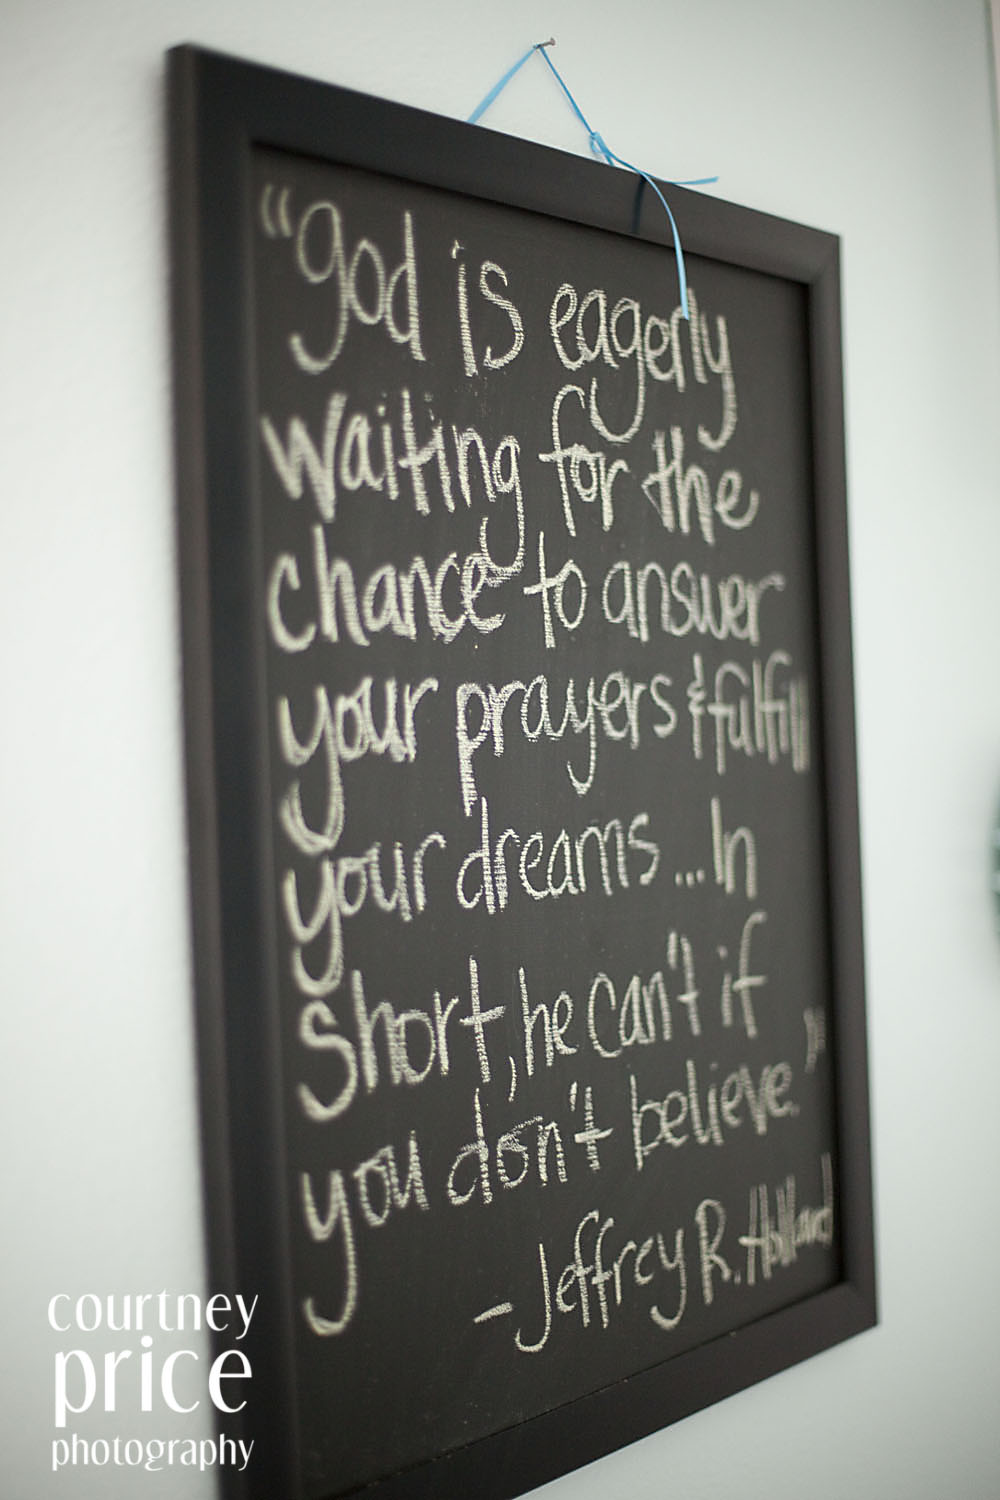 "god is eagerly
waiting for the
chance to answer
your prayers & fulfill
your dreams... In
short, he can't if
you don't believe."
- Jeffrey R. Holland
courtney
price
photography